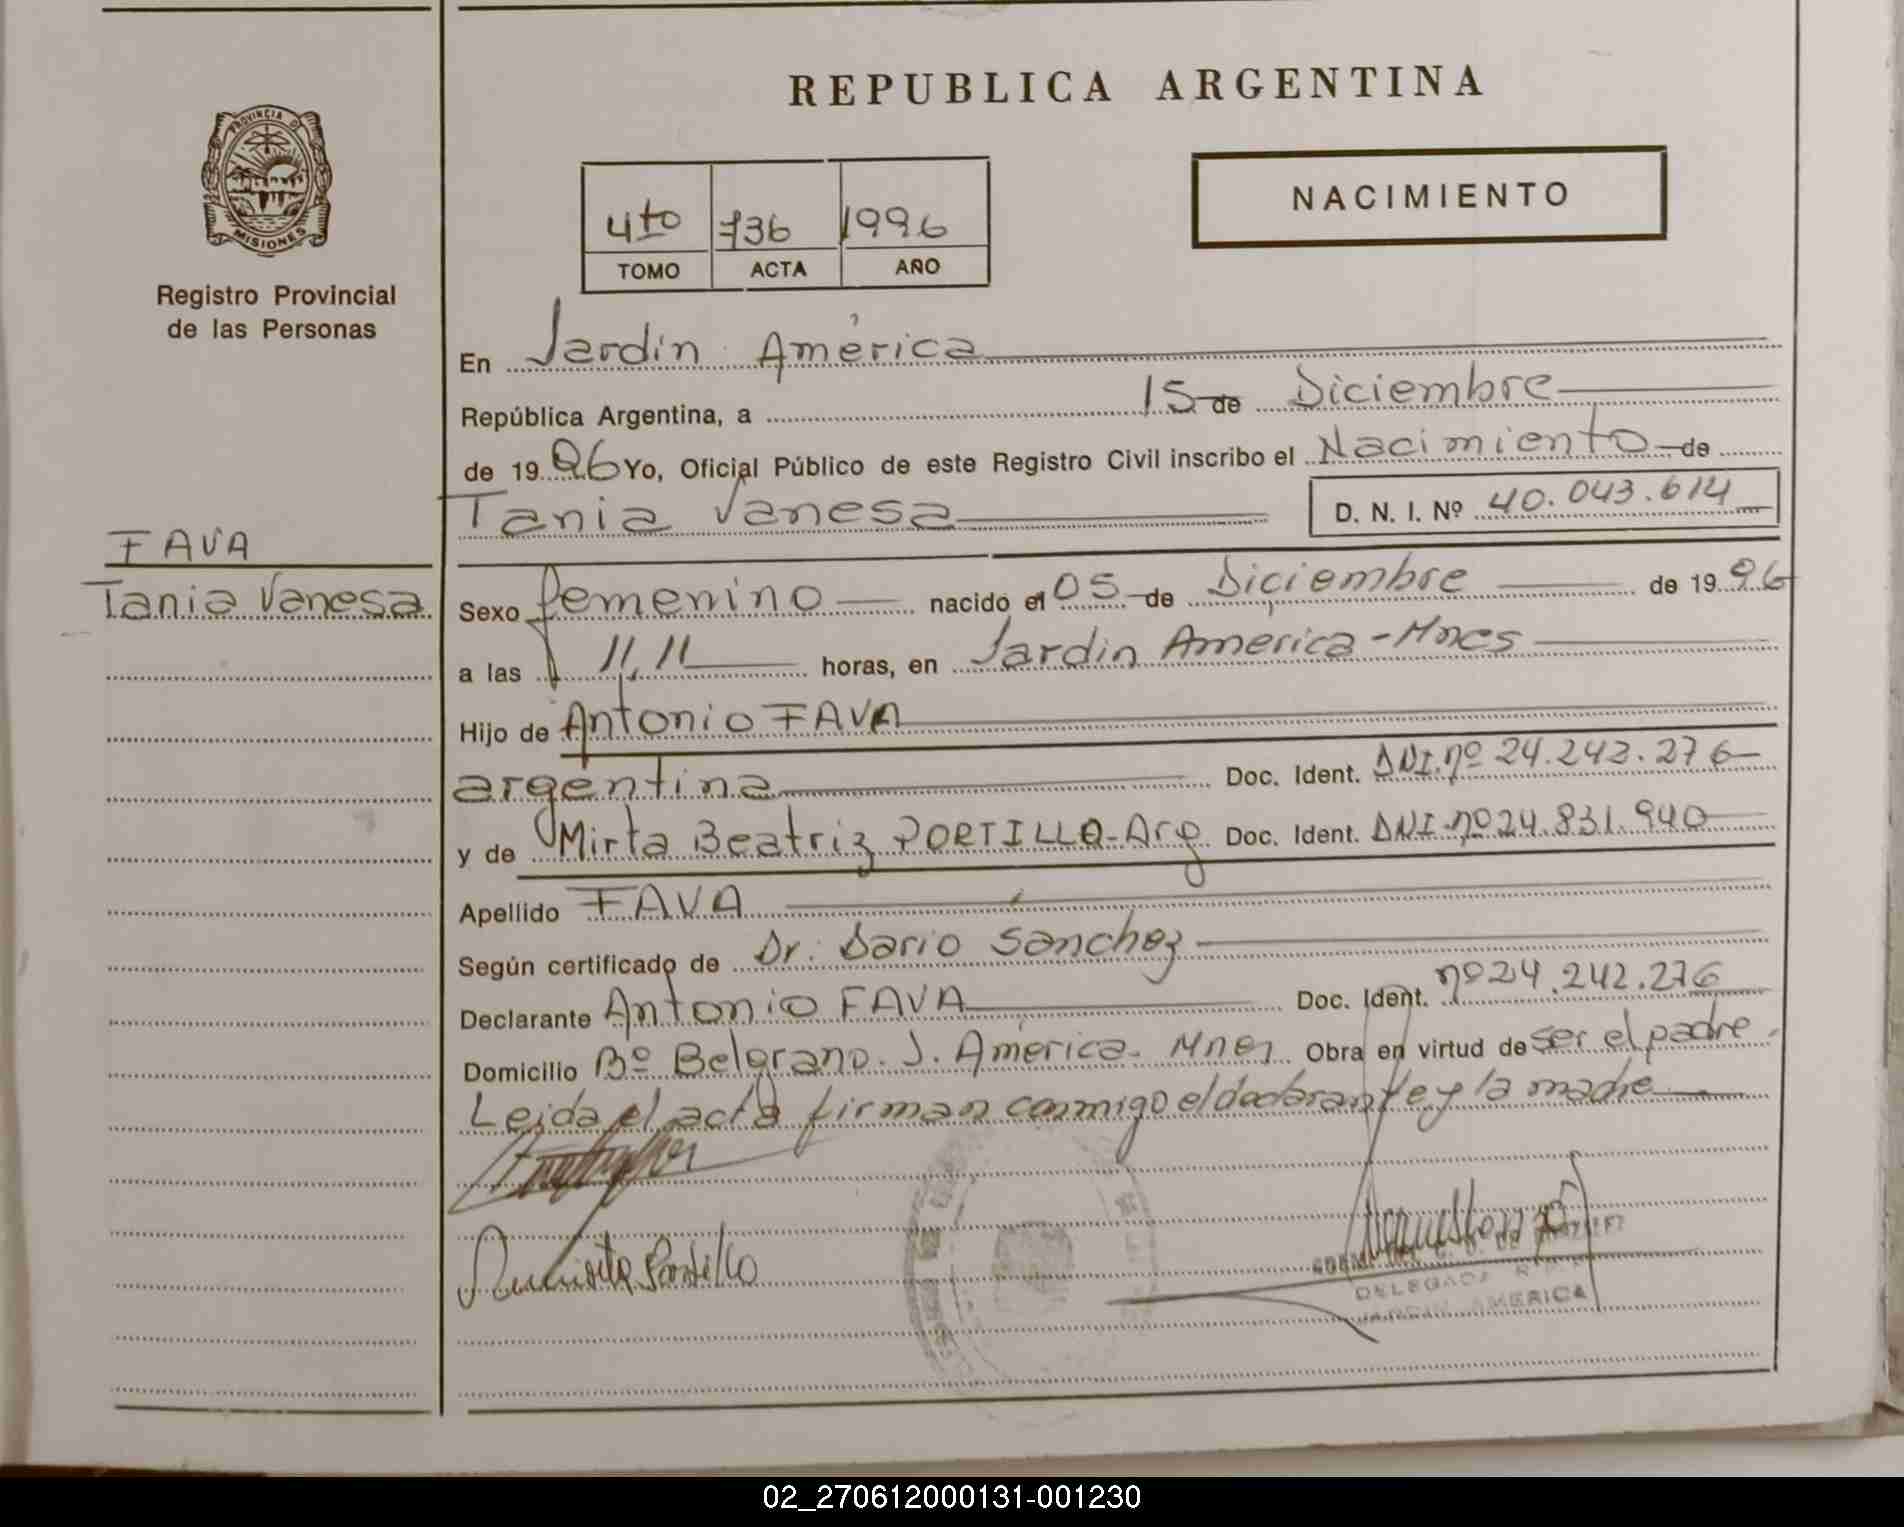 REPUBLICA ARGENTINA
PROVINCIA D
MISIONES
Registro Provincial
de las Personas
NACIMIENTO
4to 736 1996
TOMO ACTA AÑO
En Jardín América
República Argentina, a 15 de Diciembre
de 1996 Yo, Oficial Público de este Registro Civil inscribo el Nacimiento de
Tania Vanesa D. N. I. Nº 40.043.614
FAVA
Tania Vanesa
Sexo femenino nacido el 05 de Diciembre de 1996
a las 11,11 horas, en Jardín America - Mnes
Hijo de Antonio FAVA
argentina Doc. Ident. DNI. nº 24.242.276
y de Mirta Beatriz PORTILLO - Arg Doc. Ident. DNI nº 24.831.940
Apellido FAVA
Según certificado de Dr. Dario Sanchez
Declarante Antonio FAVA Doc. Ident. nº 24.242.276
Domicilio Bº Belgrano. J. América. Mnes Obra en virtud de ser el padre.
Leida el acta firman conmigo el declarante y la madre
Portillo
DELEGADA
JARDIN AMERICA
02_270612000131-001230